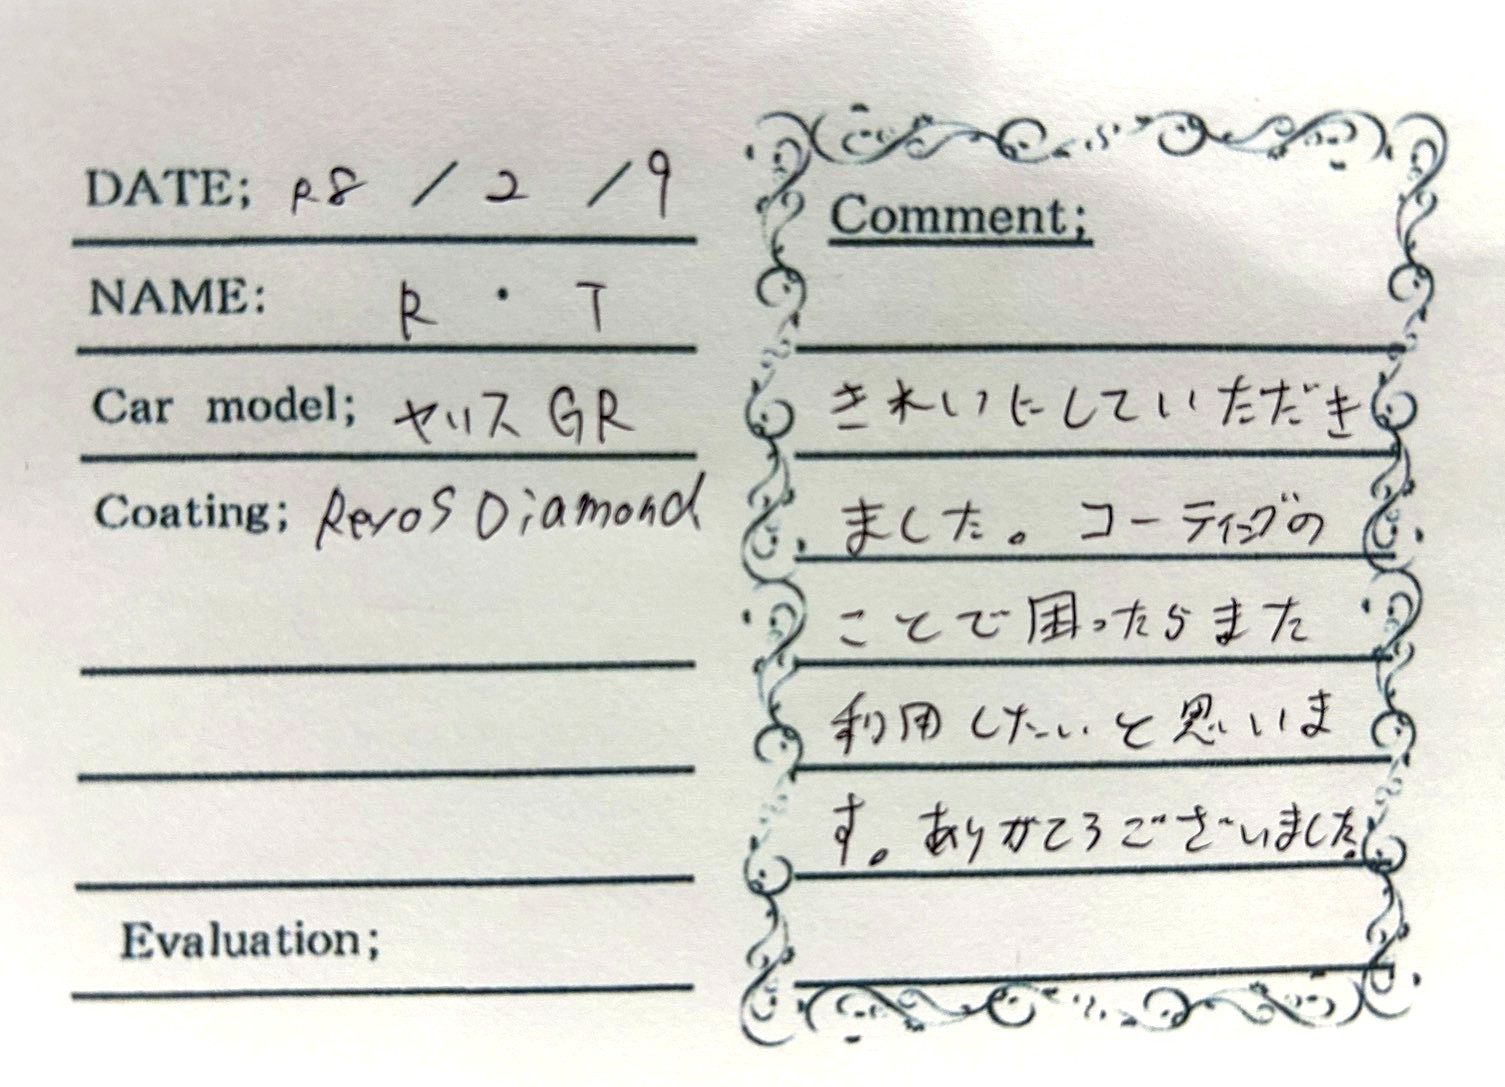 DATE; R8 / 2 / 9
NAME: R ・ T
Car model; ヤリス GR
Coating; Revos Diamond
Evaluation;
Comment;
きれいにしていただき
ました。コーティングの
ことで困ったらまた
利用したいと思いま
す。ありがとうございました。